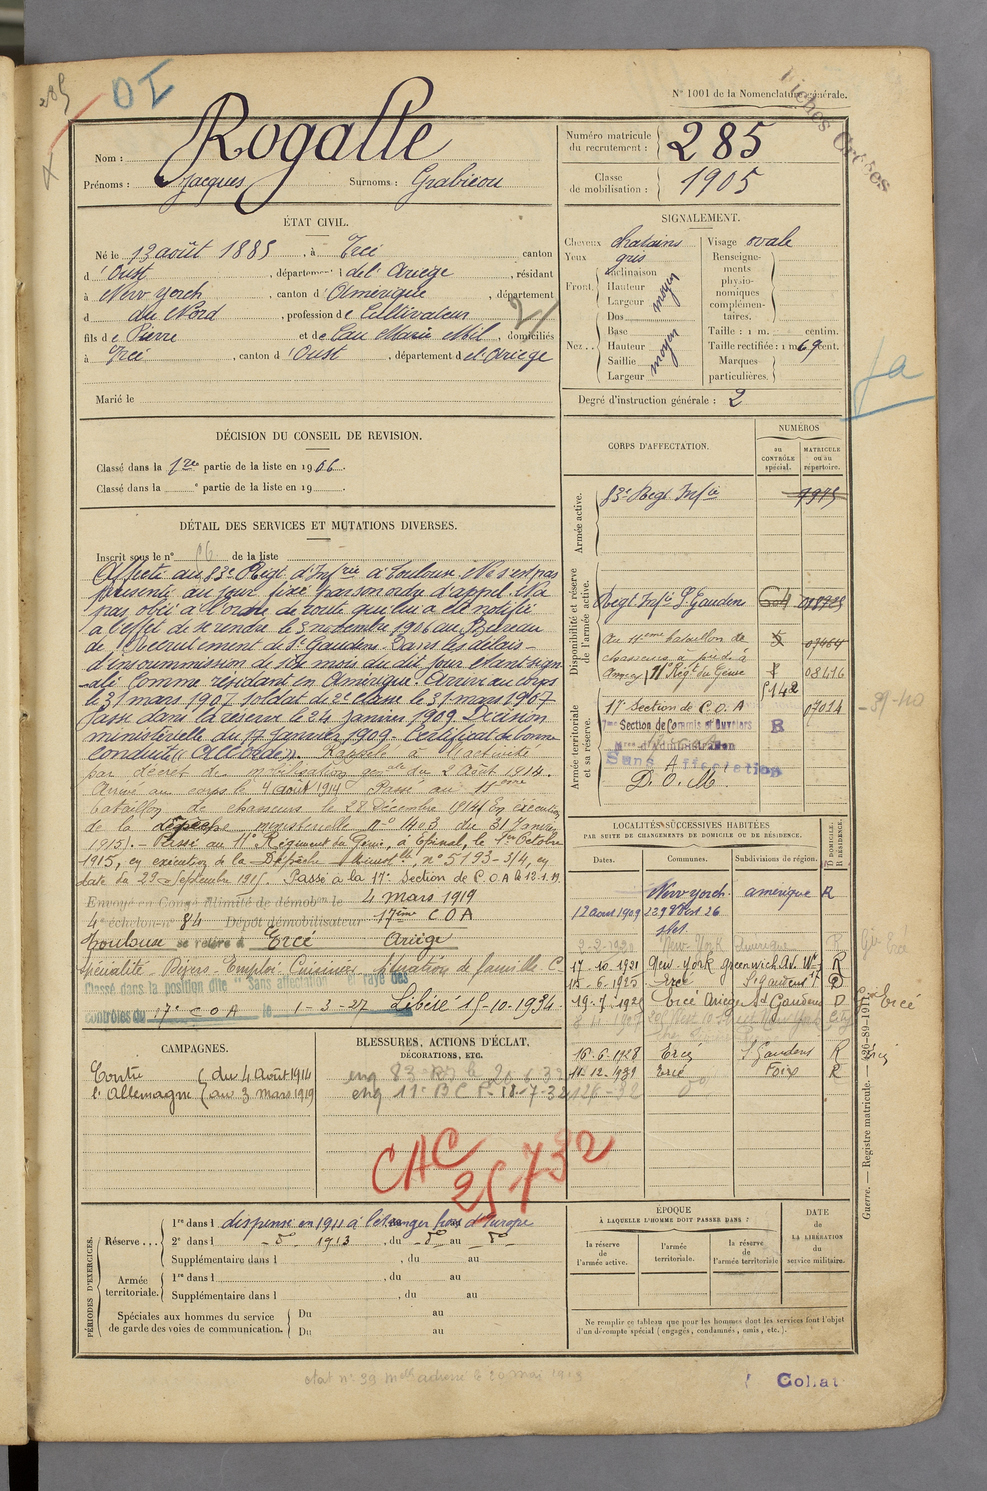 285
OI
N° 1001 de la Nomenclature générale.
Fiches Créées
Nom : Rogalle
Prénoms : Jacques Surnoms : Grabieou
Numéro matricule du recrutement : 285
Classe de mobilisation : 1905
ÉTAT CIVIL.
Né le 13 août 1885, à Ercé canton
d'Oust, département de l'Ariège, résidant
à New Yorch, canton d'Amérique, département
d du Nord, profession de Cultivateur
fils de Pierre et de Eau Marie , domiciliés
à Ercé, canton d'Oust, département de l'Ariège
Marié le
SIGNALEMENT.
Cheveux chatains Visage ovale
Yeux gris
Front. Inclinaison Hauteur Largeur moyen
Nez.. Dos Base Hauteur Saillie Largeur moyen
Renseignements physionomiques complémentaires.
Taille : 1 m. centim.
Taille rectifiée : 1 m 69 cent.
Marques particulières.
Degré d'instruction générale : 2
DÉCISION DU CONSEIL DE REVISION.
Classé dans la 1re partie de la liste en 1906.
Classé dans la e partie de la liste en 19
DÉTAIL DES SERVICES ET MUTATIONS DIVERSES.
Inscrit sous le n° 56 de la liste
Affecté au 83e Régt d'Infrie à Toulouse. Ne s'est pas
présenté au jour fixé par son ordre d'appel. N'a
pas obéi à l'ordre de route qui lui a été notifié
à l'effet de se rendre le 3 novembre 1906 au Bureau
de Recrutement de St Gaudens. Dans les délais
d'insoumission de six mois du dit jour étant signalé
comme résidant en Amérique. Arrivé au corps
le 31 mars 1907 soldat de 2e classe le 31 mars 1907
Passé dans la réserve le 24 janvier 1909. Décision
ministérielle du 17 Janvier 1909. Certificat de bonne
conduite "Accordé". Rappelé à l'activité
par décret de mobilisation génale du 2 Août 1914.
Arrivé au corps le 4 août 1914 Passé au 11ème
bataillon de chasseurs le 28 Décembre 1914 (En exécution
de la dépêche ministérielle n° 1403 du 31 Janvier
1915). - Passé au 11e Régiment du Génie, à Epinal, le 1er Octobre
1915, en exécution de la Dépêche Ministlle, n° 5193-3/4, en
date du 29 Septembre 1915. Passé à la 17e Section de C.O.A le 12.1.19.
Envoyé en Congé illimité de démobon le 4 mars 1919
4e échelon n° 84 Dépôt démobilisateur 17ème C O A
Toulouse se retire à Ercé Ariège
Spécialité - Emploi Cuisinier. Situation de famille C.
Classé dans la position dite "Sans affectation" rayé des
contrôles du 17e C O A le 1-3-27 Libéré 15-10-1934
CORPS D'AFFECTATION.
NUMÉROS
au CONTRÔLE spécial.
MATRICULE ou au répertoire.
Armée active.
83e Regt Infie 7975
Disponibilité et réserve de l'armée active.
Regt Infie St Gaudens
Au 11eme bataillon de
chasseurs à pied à
Annecy 11e Régt du Génie 08416
5142
Armée territoriale et sa réserve.
17e Section de C.O.A 07014
39-40
7me Section de Commis et Ouvriers R
Mres d'Administration
Sans Affectation
D.O.M.
LOCALITÉS SUCCESSIVES HABITÉES
PAR SUITE DE CHANGEMENTS DE DOMICILE OU DE RÉSIDENCE.
Dates. Communes. Subdivisions de région. D DOMICILE. R RÉSIDENCE.
New yorch. amérique R
12 aout 1909 229 West 26
2-2-1920 New-York Amérique R
17-10-1921 New-York Greenwich Av. R
15-6-1925 Ercé St Gaudens R
19-7-1926 Ercé Ariège St Gaudens D
16.6.1928 Ercé St Gaudens R
11.12.1931 Ercé Foix R
CAMPAGNES.
Contre l'Allemagne du 4 Août 1914 au 3 mars 1919
BLESSURES, ACTIONS D'ÉCLAT, DÉCORATIONS, ETC.
enq 83e RI le
enq 11e B C P. 18-7-32
CAC
25732
PÉRIODES D'EXERCICES.
Réserve ... 1re dans l dispensé en 1911 à l'étranger hors d'Europe
2e dans l d° 1913, du d° au d°
Supplémentaire dans l , du au
Armée territoriale. 1re dans l , du au
Supplémentaire dans l , du au
Spéciales aux hommes du service de garde des voies de communication. Du au
Du au
ÉPOQUE À LAQUELLE L'HOMME DOIT PASSER DANS :
la réserve de l'armée active.
l'armée territoriale.
la réserve de l'armée territoriale
DATE de LA LIBÉRATION du service militaire.
Ne remplir ce tableau que pour les hommes dont les services font l'objet
d'un décompte spécial (engagés, condamnés, omis, etc.).
Guerre. — Registre matricule. —